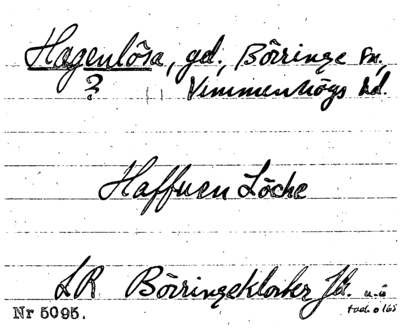 Hagenlösa, gd, Börringe sn,
? Vemmenhögs hd.
Haffuen Löche
LR Börringekloster Jb.
Nr 5095.